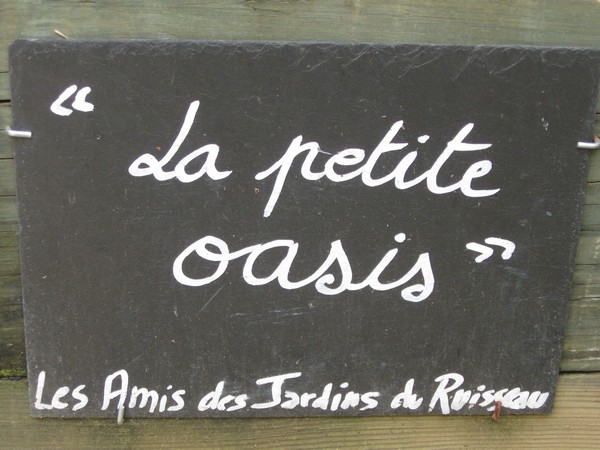 « La petite
oasis »
Les Amis des Jardins du Ruisseau